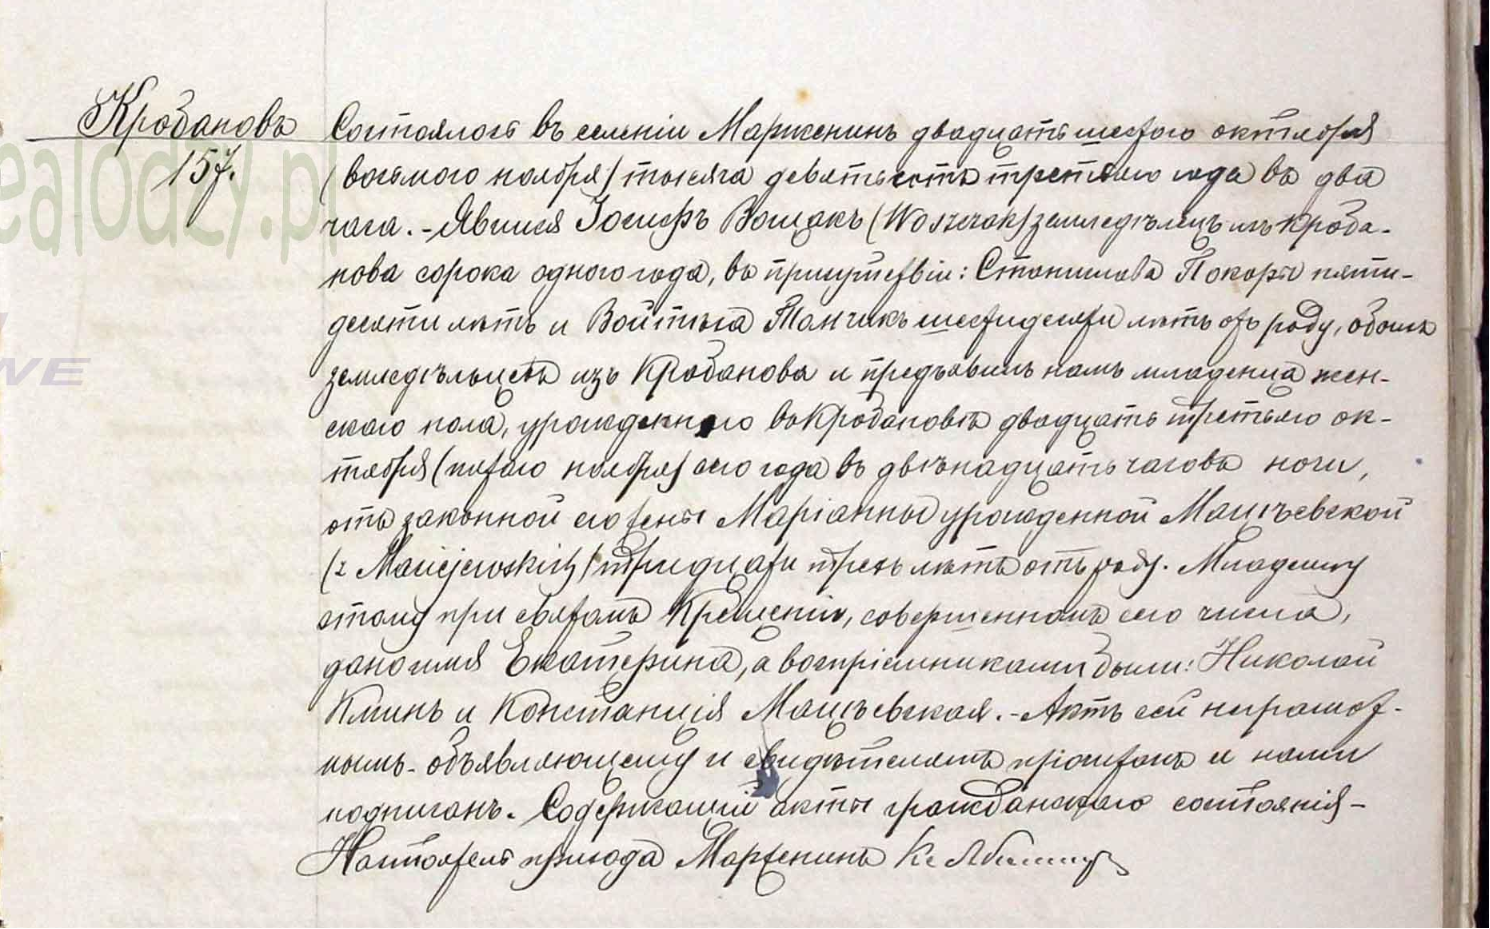 Кробановъ
157.
Состоялось въ селеніи Марженинъ двадцать шестаго октября
(восьмого ноября) тысяча девятьсотъ третьяго года въ два
часа. - Явился Іосифъ Вощакъ (Woszczak) земледѣлецъ изъ Кроба-
нова сорока одного года, въ присутствіи: Станислава Покоры пяти-
десяти лѣтъ и Войтѣха Танчакъ шестидесяти лѣтъ отъ роду, обоихъ
земледѣльцевъ изъ Кробанова и предъявилъ намъ младенца жен-
скаго пола, урожденнаго въ Кробановѣ двадцать третьяго ок-
тября (пятаго ноября) сего года въ двѣнадцать часовъ ночи,
отъ законной его жены Маріанны урожденной Мацѣевской
(z Maciejewskich) тридцати трехъ лѣтъ отъ роду. Младенцу
этому при святомъ Крещеніи, совершенномъ сего числа,
дано имя Екатерина, а воспріемниками были: Николай
Клинъ и Констанція Мацѣевская. - Актъ сей неграмот-
нымъ - объявляющему и свидѣтелямъ прочитанъ и нами
подписанъ. Содержащій акты гражданскаго состоянія -
Настоятель прихода Марженинъ Кс
ealodzy.pl
WNE